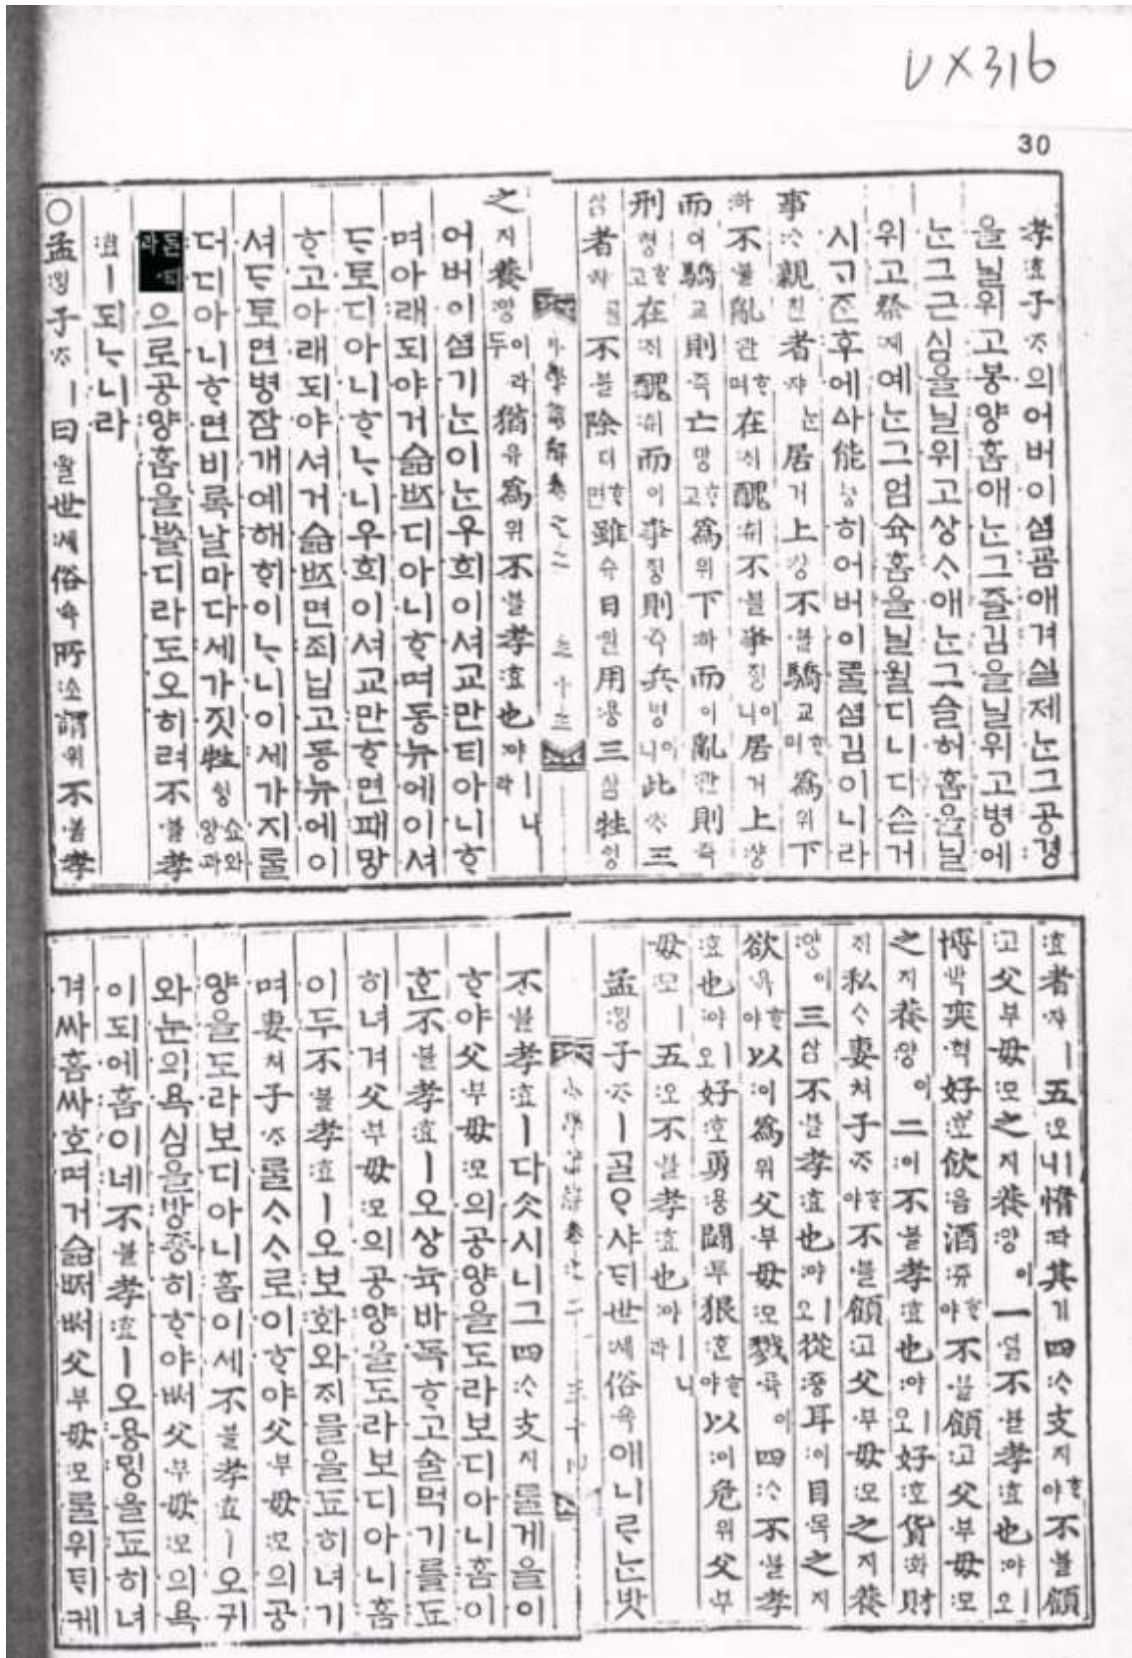 UX316
30
孝효子ᄌᆞ의어버이셤굠애겨실제ᄂᆞᆫ그공경
을닐위고봉양홈애ᄂᆞᆫ그즐김을닐위고병에
ᄂᆞᆫ그근심을닐위고상ᄉᆞ애ᄂᆞᆫ그슬허홈을닐
위고祭졔예ᄂᆞᆫ그엄슉홈을닐윌디니다ᄉᆞᆺ거
시ᄀᆞᄌᆞᆫ후에ᅀᅡ能능히어버이ᄅᆞᆯ셤김이니라
事ᄉᆞ親친者쟈ᄂᆞᆫ居거上샹不블驕교ᄒᆞ며爲위下
하不블亂란ᄒᆞ며在ᄌᆡ醜츄不블爭ᄌᆡᆼ이니居거上샹
而이驕교則즉亡망ᄒᆞ고爲위下하而이亂란則즉
刑형ᄒᆞ고在ᄌᆡ醜츄而이爭ᄌᆡᆼ則즉兵병이니此ᄎᆞ三
삼者쟈ᄅᆞᆯ不블除뎨ᄒᆞ면雖슈日일用용三삼牲ᄉᆡᆼ
之지養양이라두猶유爲위不블孝효也야ㅣ니라
小學諺解卷之二
어버이셤기ᄂᆞᆫ이ᄂᆞᆫ우희이셔교만티아니ᄒᆞ
며아래되야거슯ᄧᅳ디아니ᄒᆞ며동뉴에이셔
ᄃᆞ토디아니ᄒᆞᄂᆞ니우희이셔교만ᄒᆞ면패망
ᄒᆞ고아래되야셔거슯ᄧᅳ면죄닙고동뉴에이
셔ᄃᆞ토면병잠개예해ᄒᆞ이ᄂᆞ니이세가지ᄅᆞᆯ
더디아니ᄒᆞ면비록날마다세가짓牲ᄉᆡᆼ쇼와양과
돋ᄐᆡ라으로공양홈을ᄡᅳᆯ디라도오히려不블孝
효ㅣ되ᄂᆞ니라
○孟ᄆᆡᆼ子ᄌᆞㅣ曰왈世셰俗쇽所소謂위不블孝
효者쟈ㅣ五오ㅣ니惰타其기四ᄉᆞ支지ᄒᆞ야不블顧
고父부母모之지養양이一일不블孝효也야ㅣ오
博박奕혁好호飮음酒쥬ᄒᆞ야不블顧고父부母모
之지養양이二이不블孝효也야ㅣ오好호貨화財
ᄌᆡ私ᄉᆞ妻쳐子ᄌᆞᄒᆞ야不블顧고父부母모之지養
양이三삼不블孝효也야ㅣ오從죵耳이目목之지
欲욕ᄒᆞ야以이爲위父부母모戮륙이四ᄉᆞ不블孝
효也야ㅣ오好호勇용鬪투狠흔ᄒᆞ야以이危위父부
母모ㅣ五오不블孝효也야ㅣ니라
孟ᄆᆡᆼ子ᄌᆞㅣ ᄀᆞᆯᄋᆞ샤ᄃᆡ世셰俗쇽애니ᄅᆞᄂᆞᆫ밧
小學諺解卷之二
不블孝효ㅣ다ᄉᆞᆺ시니그四ᄉᆞ支지ᄅᆞᆯ게을이
ᄒᆞ야父부母모의공양을도라보디아니홈이
ᄒᆞᆫ不블孝효ㅣ오상뉵바독ᄒᆞ고술먹기를됴
히녀겨父부母모의공양을도라보디아니홈
이두不블孝효ㅣ오보화와ᄌᆡ믈을됴히녀기
며妻쳐子ᄌᆞᄅᆞᆯᄉᆞᄉᆞ로이ᄒᆞ야父부母모의공
양을도라보디아니홈이세不블孝효ㅣ오귀
와눈의욕심을방죵히ᄒᆞ야ᄡᅥ父부母모의욕
이되에홈이네不블孝효ㅣ오용ᄆᆡᆼ을됴히녀
겨싸홈싸호며거슯ᄧᅥᄡᅥ父부母모ᄅᆞᆯ위ᄐᆡ케